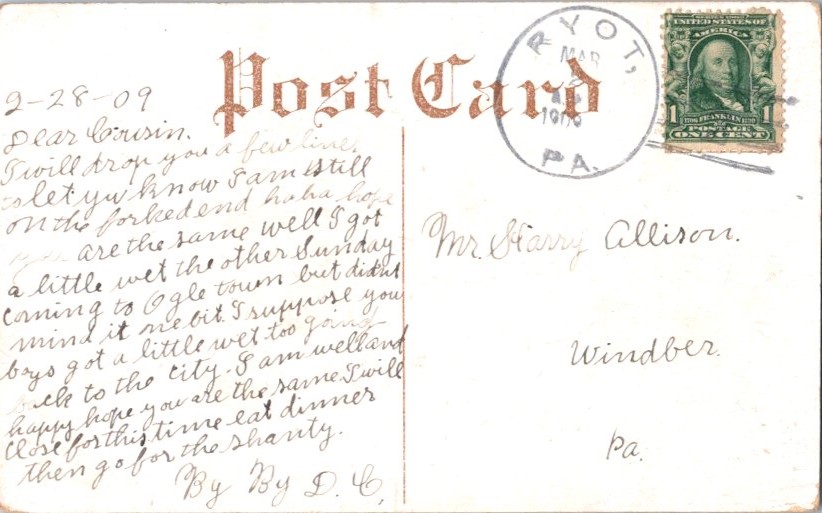 Post Card
RYOT,
MAR
PA.
SERIES 1902
UNITED STATES OF
AMERICA
1 1706 FRANKLIN 1790 1
POSTAGE
ONE CENT
2-28-09
Dear Cousin.
I will drop you a few lines
to let yuw know I am still
on the forked end haha hope
you are the same well I got
a little wet the other Sunday
coming to Ogle town but didnt
mind it nebit. I suppose you
boys got a little wet too going
back to the city. I am well and
happy hope you are the same. I will
close for this time eat dinner
then go for the shanty.
By By D. C,
Mr. Harry Allison.
Windber.
Pa.